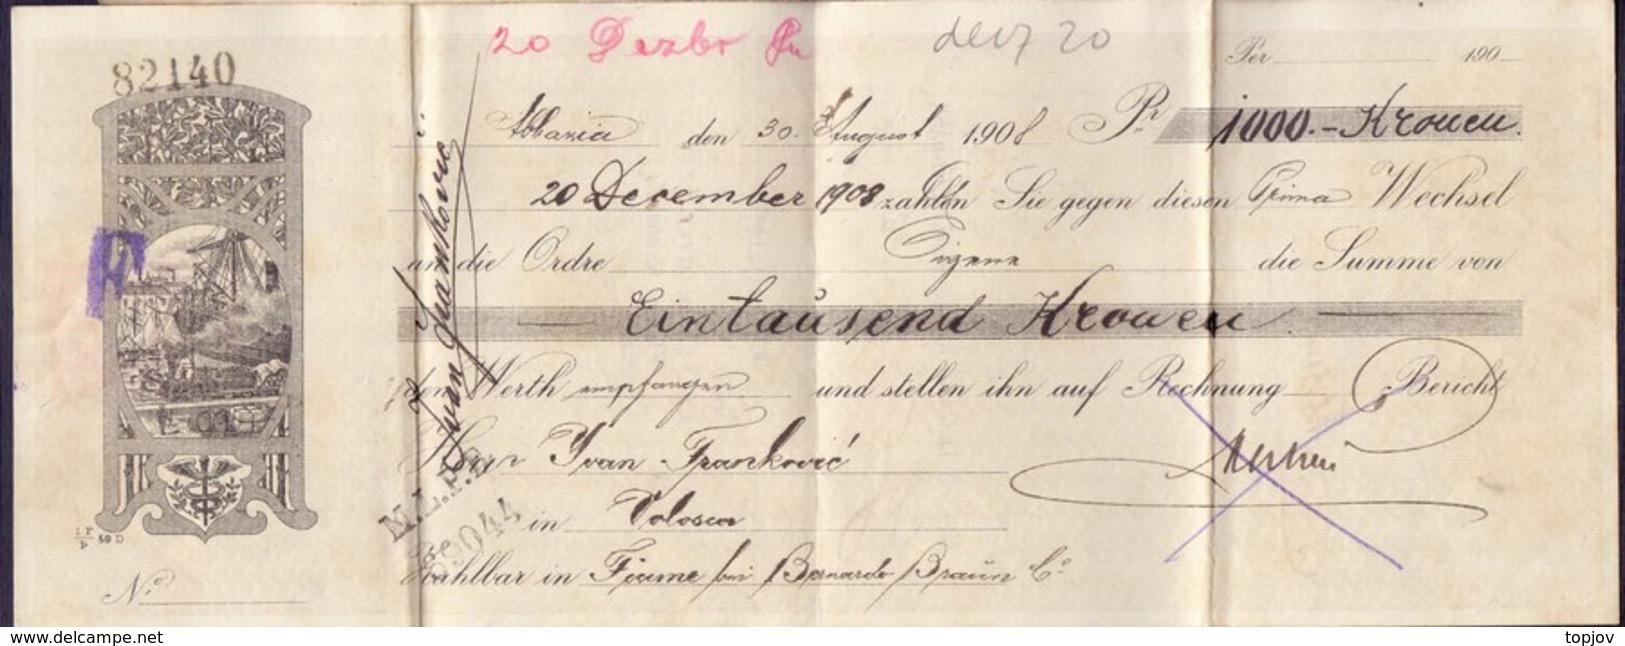 20 Dezbr
dez 20
Per 190
82140
Abbazia den 30. August 1908 Pr 1000.- Kronen.
20 December 1908 zahlen Sie gegen diesen Prima Wechsel
an die Ordre Eigene die Summe von
Eintausend Kronen
den Werth empfangen und stellen ihn auf Rechnung Bericht
Herrn Ivan Franković
in Volosca
Zahlbar in Fiume bei Bernardo Braun & Co
Ivan Franković
39044
50 D
No
www.delcampe.net
topjov